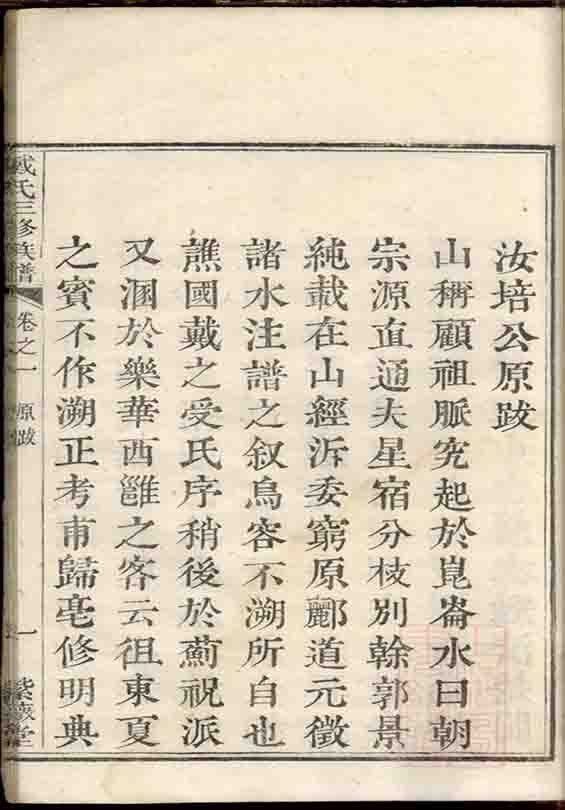 汝培公原跋
山稱顧祖脈究起於崑崙水曰朝
宗源直通夫星宿分枝別榦郭景
純載在山經泝委窮原酈道元徵
諸水注譜之叙烏容不溯所自也
譙國戴之受氏序稍後於薊祝派
又溷於樂華西雝之客云徂東夏
之賓不作溯正考甫歸亳修明典
戴氏三修族譜 卷之一 原跋 一 紫薇堂